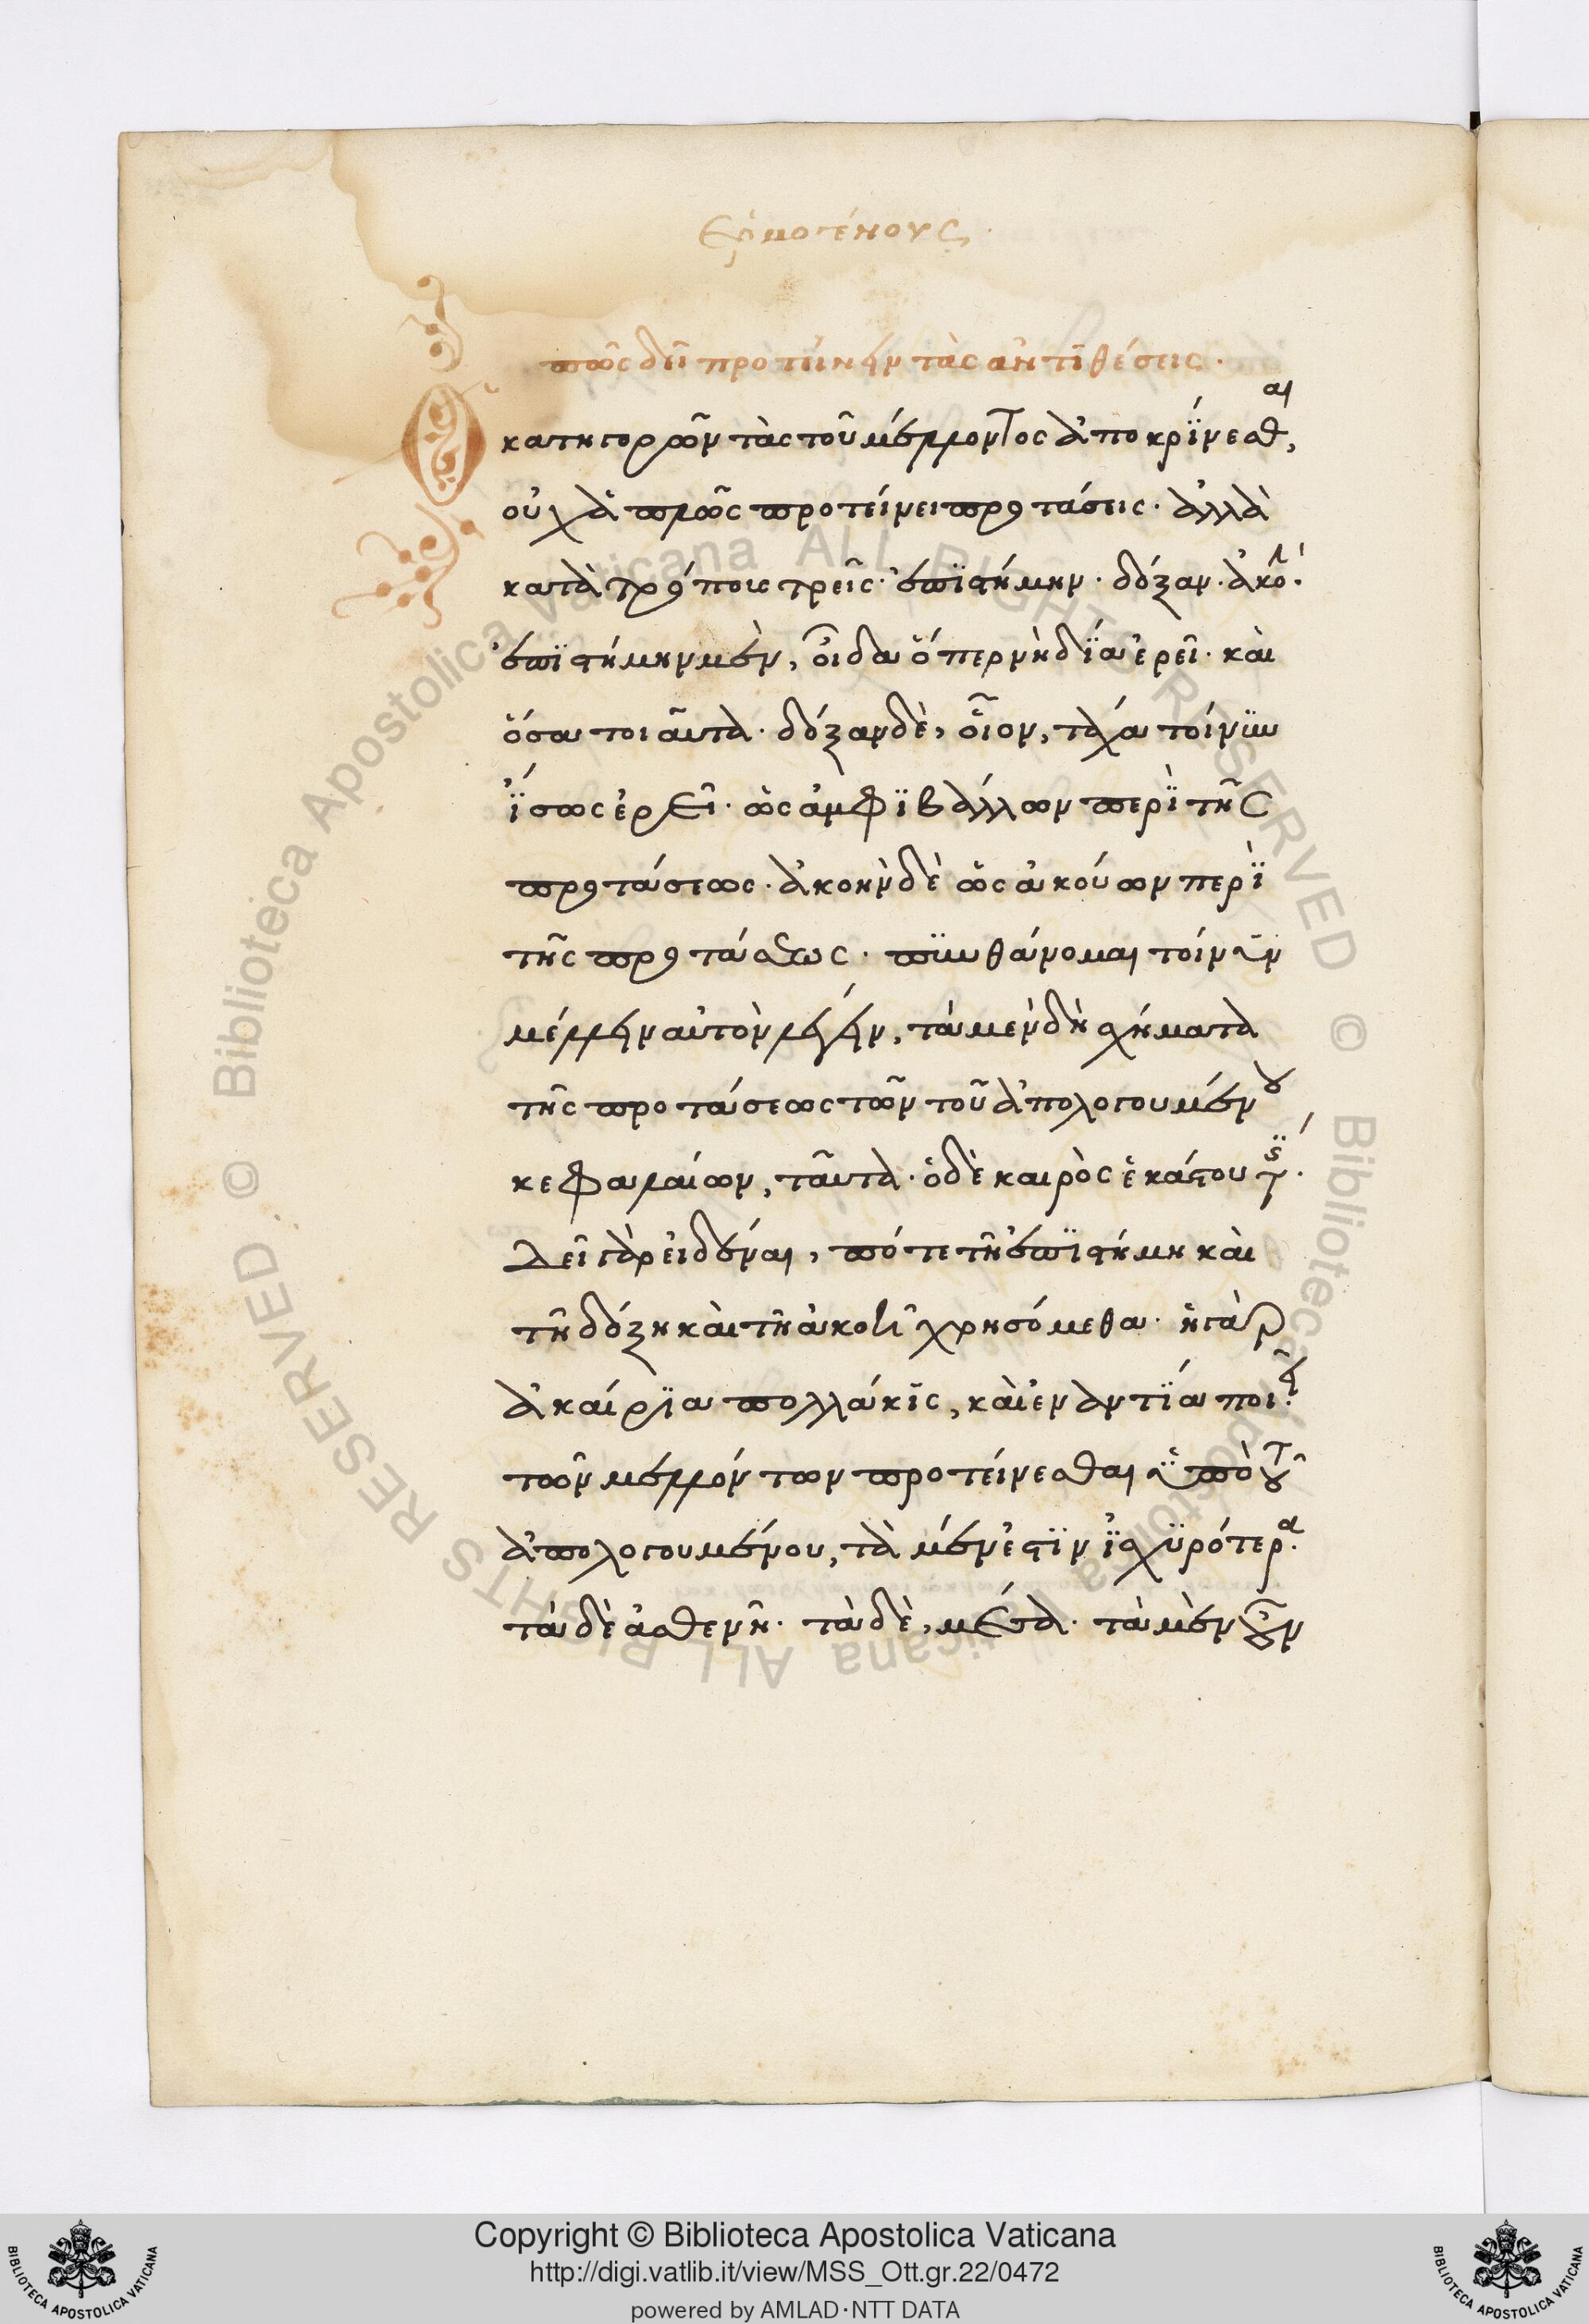 Ἑρμογένους
πῶς δεῖ προτείνειν τὰς ἀντιθέσεις.
Ὁ κατηγορῶν τὰς τοῦ μέλλοντος ἀποκρίνεσθαι,
οὐχ ἁπλῶς προτείνει προτάσεις. ἀλλὰ
κατὰ τρόπους τρεῖς. ἐπϊστήμην. δόξαν. ἀκο.
ἐπϊστήμην μὲν, οἶδα ὅπερ νὴ δΐα ἐρεῖ. καὶ
ὅσα τοιαῦτα. δόξαν δὲ, οἷον, τάχα τοίνϋν
ἴσως ἐρεῖ. ὡς ἀμφϊβάλλων περὶ τῆς
προτάσεως. ἀκοὴν δὲ ὡς ἀκούων περὶ
τῆς προτάσεως. πϋνθάνομαι τοίνυν
μέλλειν αὐτὸν λέγειν, τὰ μὲν δὴ σχήματα
τῆς προτάσεως τῶν τοῦ ἀπολογουμένου
κεφαλαίων, ταῦτα. ὁ δὲ καιρὸς ἑκάστου τ.
Δεῖ γὰρ εἰδέναι, πότε τῇ ἐπϊστήμη καὶ
τῇ δόξη καὶ τῇ ἀκοῇ χρησόμεθα. ἡ γὰρ
ἀκαίρϊα πολλάκις, καὶ ἐναντΐα ποιεῖ.
τῶν μελλόντων προτείνεσθαι ὑπὸ τοῦ
ἀπολογουμένου, τὰ μέν ἐστϊν ἰσχϋρότερα.
τὰ δὲ ἀσθενῆ. τὰ δὲ, μέγα. τὰ μὲν οὖν
Copyright © Biblioteca Apostolica Vaticana
http://digi.vatlib.it/view/MSS_Ott.gr.22/0472
powered by AMLAD·NTT DATA
BIBLIOTECA APOSTOLICA VATICANA
BIBLIOTECA APOSTOLICA VATICANA
© Biblioteca Apostolica Vaticana ALL RIGHTS RESERVED
© Biblioteca Apostolica Vaticana ALL RIGHTS RESERVED